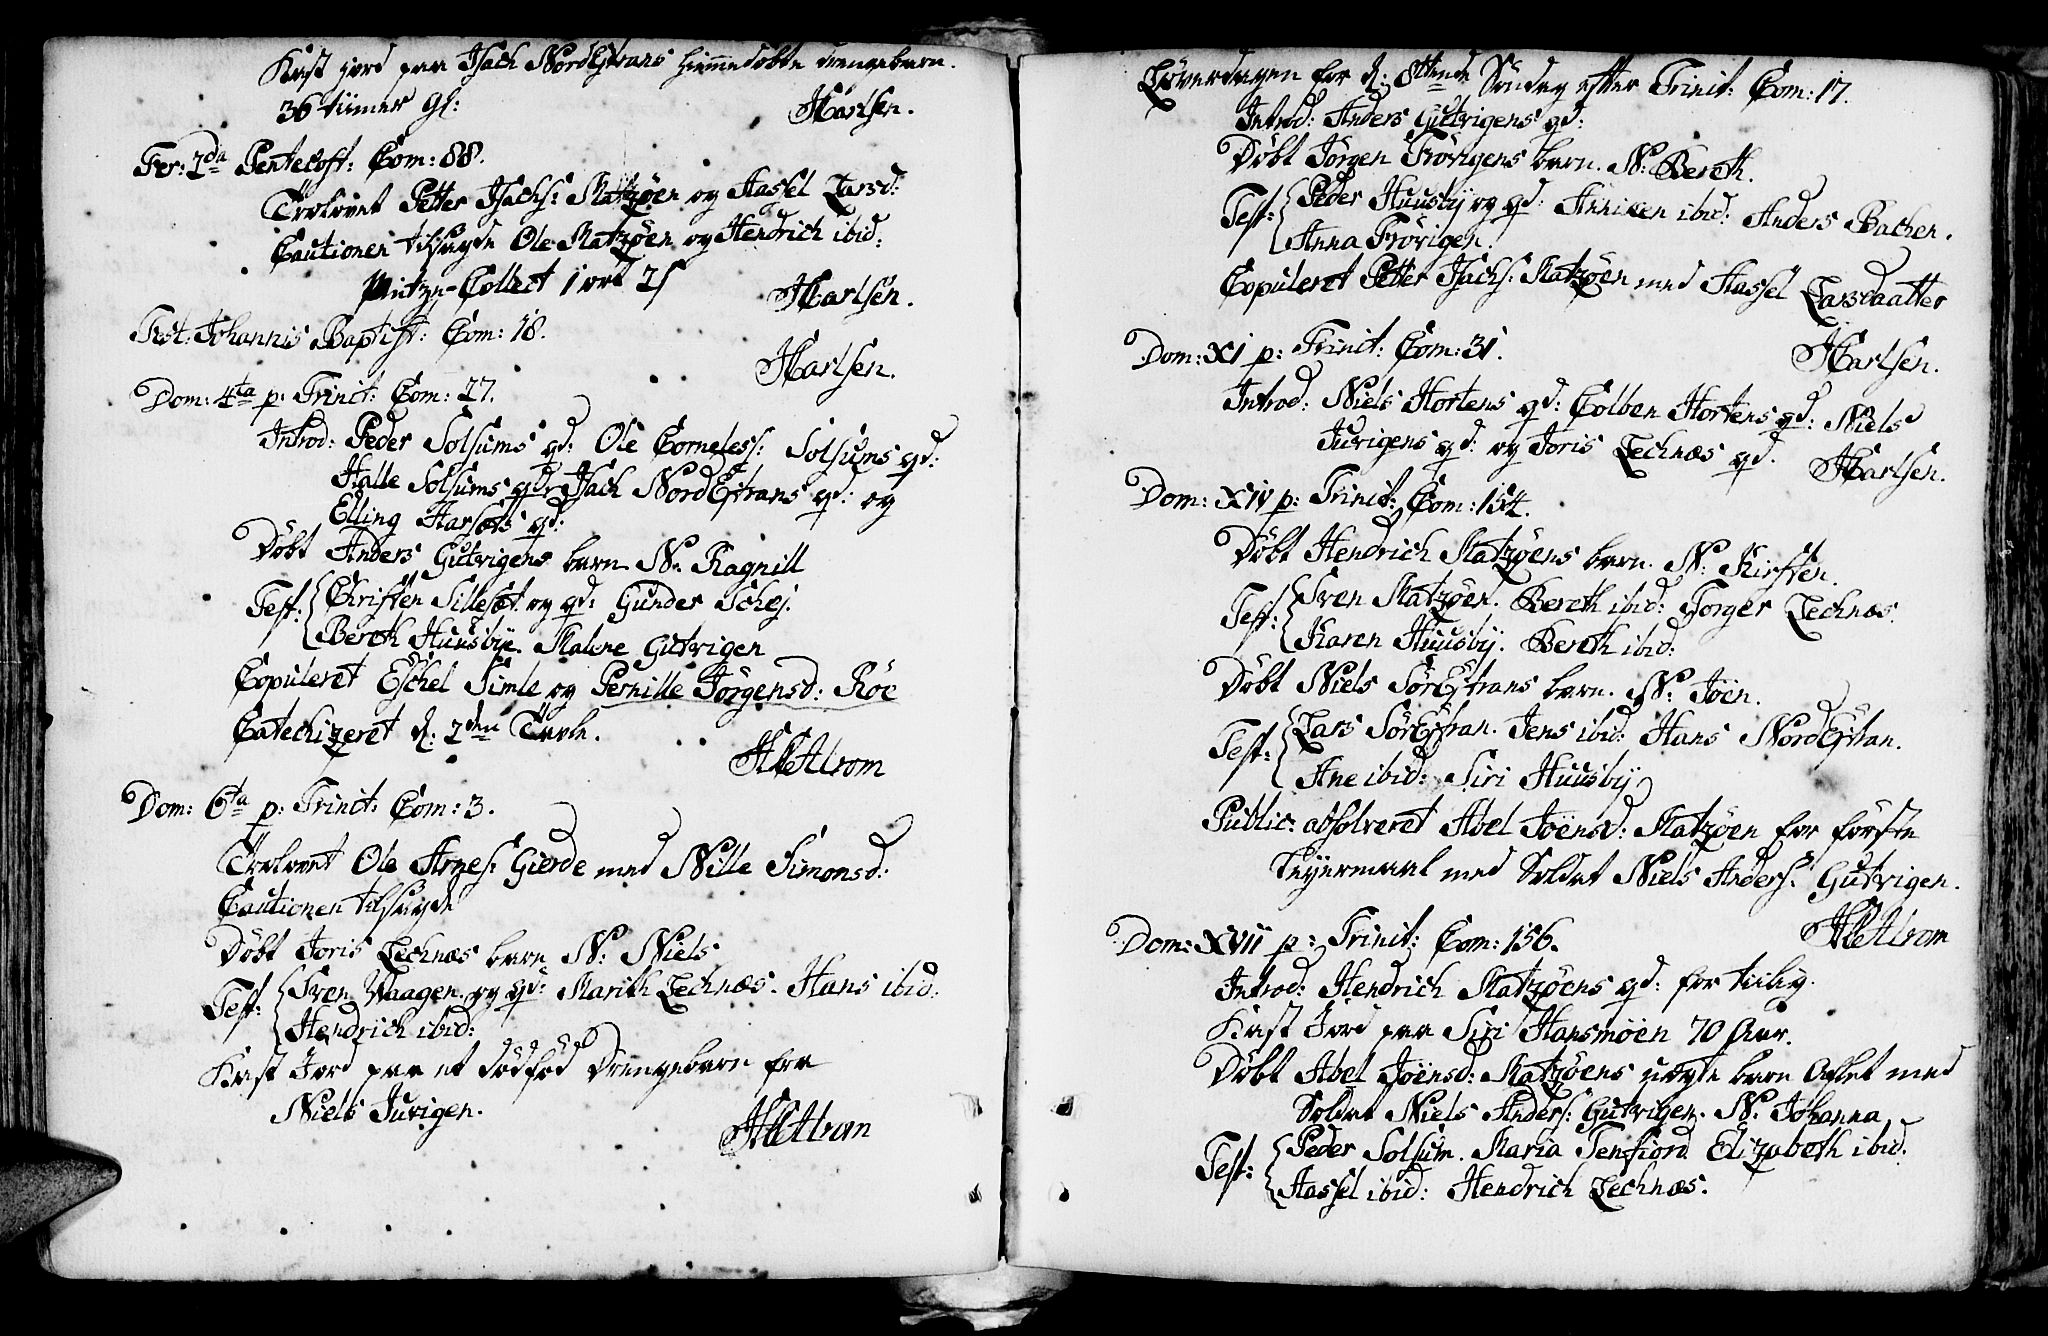 Kast jord paa Isach NordEstrans hiemedöbte drengebarn.
36 tiimer gl:
HCarlsen.
Fer: 2da Pentecost: Com: 88.
Trolovet Petter Isachs: Matzöen og Hassel Larsd:
Cautionen tilsagde Ole Matzöen og Hendrich ibid:
Collect 1 ort 2 s
HCarlsen.
Fest: Johannis Baptist: Com: 18.
HCarlsen.
Dom: 4ta p: Trinit: Com: 27.
Introd: Peder Solsums qd: Ole Corneless: Solsums qd:
Halle Solsums qd: Isach NordEstrans qd: og
Elling Harsets qd:
Döbt Anders Gutvigens barn N: Ragnill
Test: Christen Sillesöt og qd: Gunder Schej.
Bereth Huusbye. Malene Gutvigen
Copuleret Eschel Simle og Pernille Jörgensd: Röe
Catechizeret d: 2den Tavle.
Dom: 6ta p: Trinit: Com: 3.
Trolovet Ole Arnes: Gierde med Nille Simonsd:
Cautionen tilsagde
Döbt Joris Lechnæs barn N: Niels
Test: Sven Waagen og qd: Marith Lechnæs. Hans ibid:
Hendrich ibid:
Kast Jord paa et dödföd Drengebarn for
Niels Juvigen.
Löverdagen for d: 8tende Söndag efter Trinit: Com: 17.
Introd: Anders Gutvigens qd:
Döbt Jörgen Frövigens barn. N: Bereth.
Test: Peder Huusby og qd: Anniken ibid: Anders Bachen.
Anna Frövigen.
Copuleret Petter Isachs: Matzöen med Hassel Larsdaatter
HCarlsen.
Dom: XI p: Trinit: Com: 31.
Introd: Niels Hortens qd: Colben Hortens qd: Niels
Juvigens qd: og Joris Lechnæs qd.
HCarlsen.
Dom: XIV p: Trinit: Com: 154.
Döbt Hendrich Matzöens barn. N: Kirsten.
Test: Sven Matzöen. Bereth ibid: Torger Lechnæs.
Karen Huusby. Bereth ibid:
Döbt Niels SörEstrans barn. N: Joen.
Test: Lars SörEstran. Jens ibid: Hans NordEstran.
Ane ibid: Siri Huusby
Public: absolveret Abel Joensd: Matzöen for förste
Leyermaal med Soldat Niels Anders: Gutvigen.
Dom: XVII p: Trinit: Com: 156.
Introd: Hendrich Matzöens qd: for
Kast Jord paa Siri Hansmöen 70 Aar.
Döbt Abel Joensd: Matzöens uægte barn Aflet med
Soldat Niels Anders: Gutvigen. N: Johanna
Test: Peder Solsum. Maria Tenfiord Elizabeth ibid.
Hassel ibid: Hendrich Lechnæs.